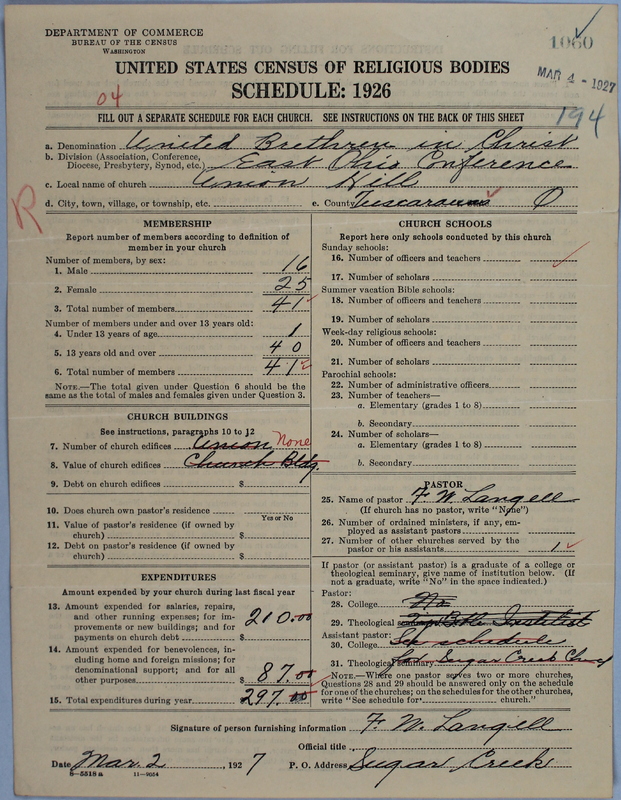 DEPARTMENT OF COMMERCE
BUREAU OF THE CENSUS
WASHINGTON
1060
MAR 4 - 1927
UNITED STATES CENSUS OF RELIGIOUS BODIES
SCHEDULE: 1926
04
FILL OUT A SEPARATE SCHEDULE FOR EACH CHURCH. SEE INSTRUCTIONS ON THE BACK OF THIS SHEET
194
a. Denomination United Brethren in Christ
b. Division (Association, Conference, Diocese, Presbytery, Synod, etc.) East Ohio Conference
c. Local name of church Union Hill
d. City, town, village, or township, etc. e. County Tuscarawas O
R
MEMBERSHIP
Report number of members according to definition of
member in your church
Number of members, by sex:
1. Male 16
2. Female 25
3. Total number of members 41
Number of members under and over 13 years old:
4. Under 13 years of age 1
5. 13 years old and over 40
6. Total number of members 41
NOTE.—The total given under Question 6 should be the
same as the total of males and females given under Question 3.
CHURCH BUILDINGS
See instructions, paragraphs 10 to 12
7. Number of church edifices Union None
8. Value of church edifices Church Bldg.
9. Debt on church edifices $
10. Does church own pastor's residence
Yes or No
11. Value of pastor's residence (if owned by
church) $
12. Debt on pastor's residence (if owned by
church) $
EXPENDITURES
Amount expended by your church during last fiscal year
13. Amount expended for salaries, repairs,
and other running expenses; for im-
provements or new buildings; and for
payments on church debt $ 210.00
14. Amount expended for benevolences, in-
cluding home and foreign missions; for
denominational support; and for all
other purposes $ 87.00
15. Total expenditures during year $ 297.00
CHURCH SCHOOLS
Report here only schools conducted by this church
Sunday schools:
16. Number of officers and teachers
17. Number of scholars
Summer vacation Bible schools:
18. Number of officers and teachers
19. Number of scholars
Week-day religious schools:
20. Number of officers and teachers
21. Number of scholars
Parochial schools:
22. Number of administrative officers
23. Number of teachers—
a. Elementary (grades 1 to 8)
b. Secondary
24. Number of scholars—
a. Elementary (grades 1 to 8)
b. Secondary
PASTOR
25. Name of pastor F. W. Langell
(If church has no pastor, write "None")
26. Number of ordained ministers, if any, em-
ployed as assistant pastors
27. Number of other churches served by the
pastor or his assistants 1
If pastor (or assistant pastor) is a graduate of a college or
theological seminary, give name of institution below. (If
not a graduate, write "No" in the space indicated.)
Pastor:
28. College No
29. Theological
Assistant pastor:
30. College See schedule
31. Theological Sugar Creek Church
NOTE.—Where one pastor serves two or more churches,
Questions 28 and 29 should be answered only on the schedule
for one of the churches; on the schedules for the other churches,
write "See schedule for church."
Signature of person furnishing information F. W. Langell
Official title
Date Mar. 2, 1927 P. O. Address Sugar Creek
8—5518 a 11—9054